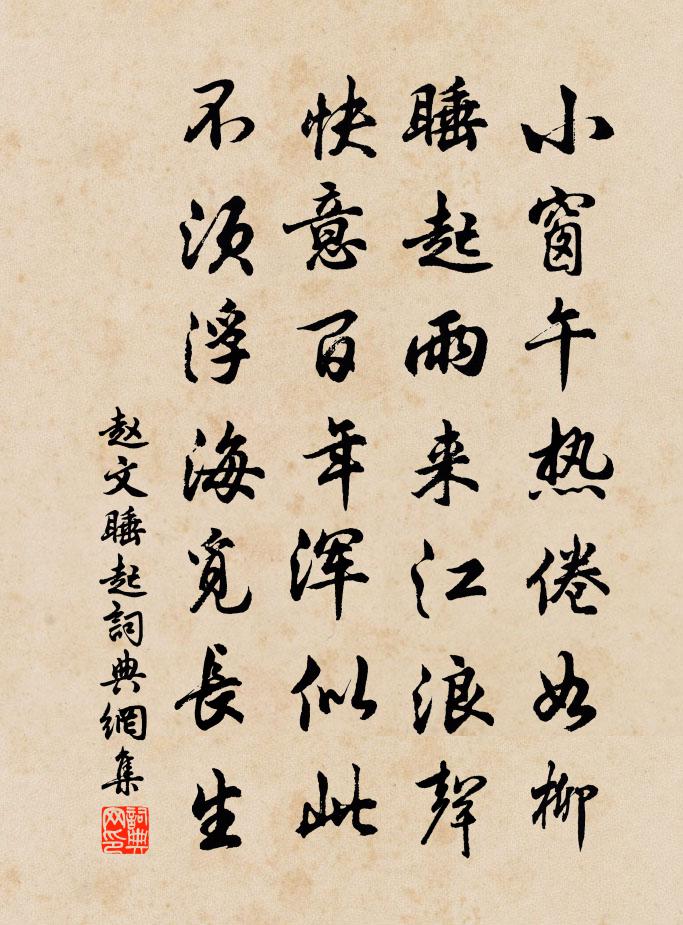 小窗午热倦如柳
睡起雨来江浪聲
快意百年浑似此
不须浮海觅長生
赵文睡起詞典網集
詞典网印